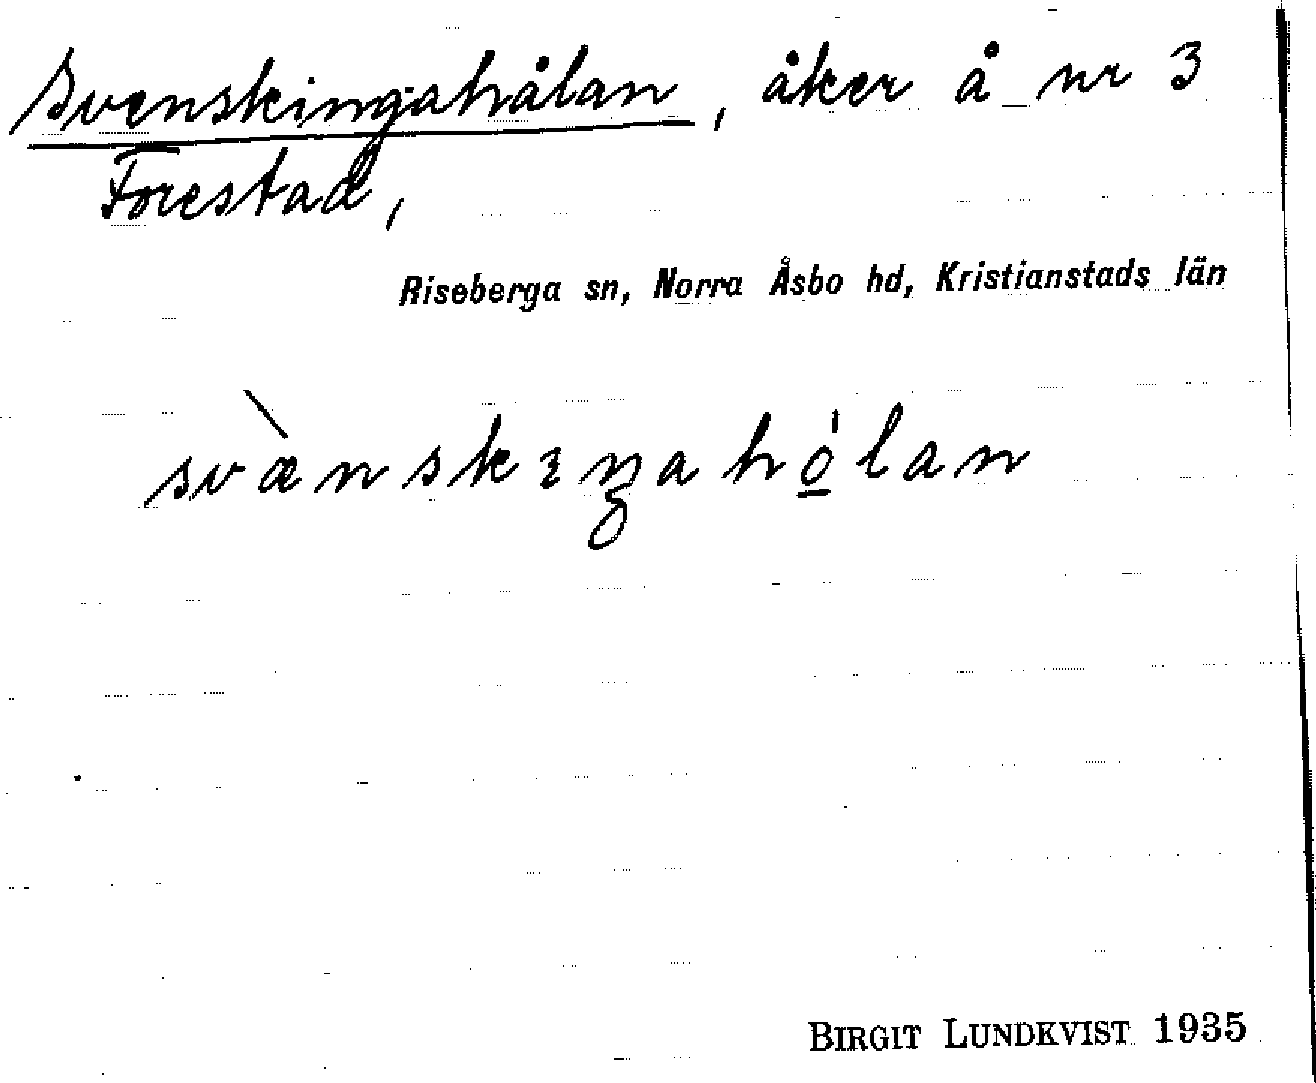 Svenskingahålan, åker å nr 3
Forestad,
Riseberga sn, Norra Åsbo hd, Kristianstads län
svæ̀nskıŋahó̱lan
BIRGIT LUNDKVIST 1935